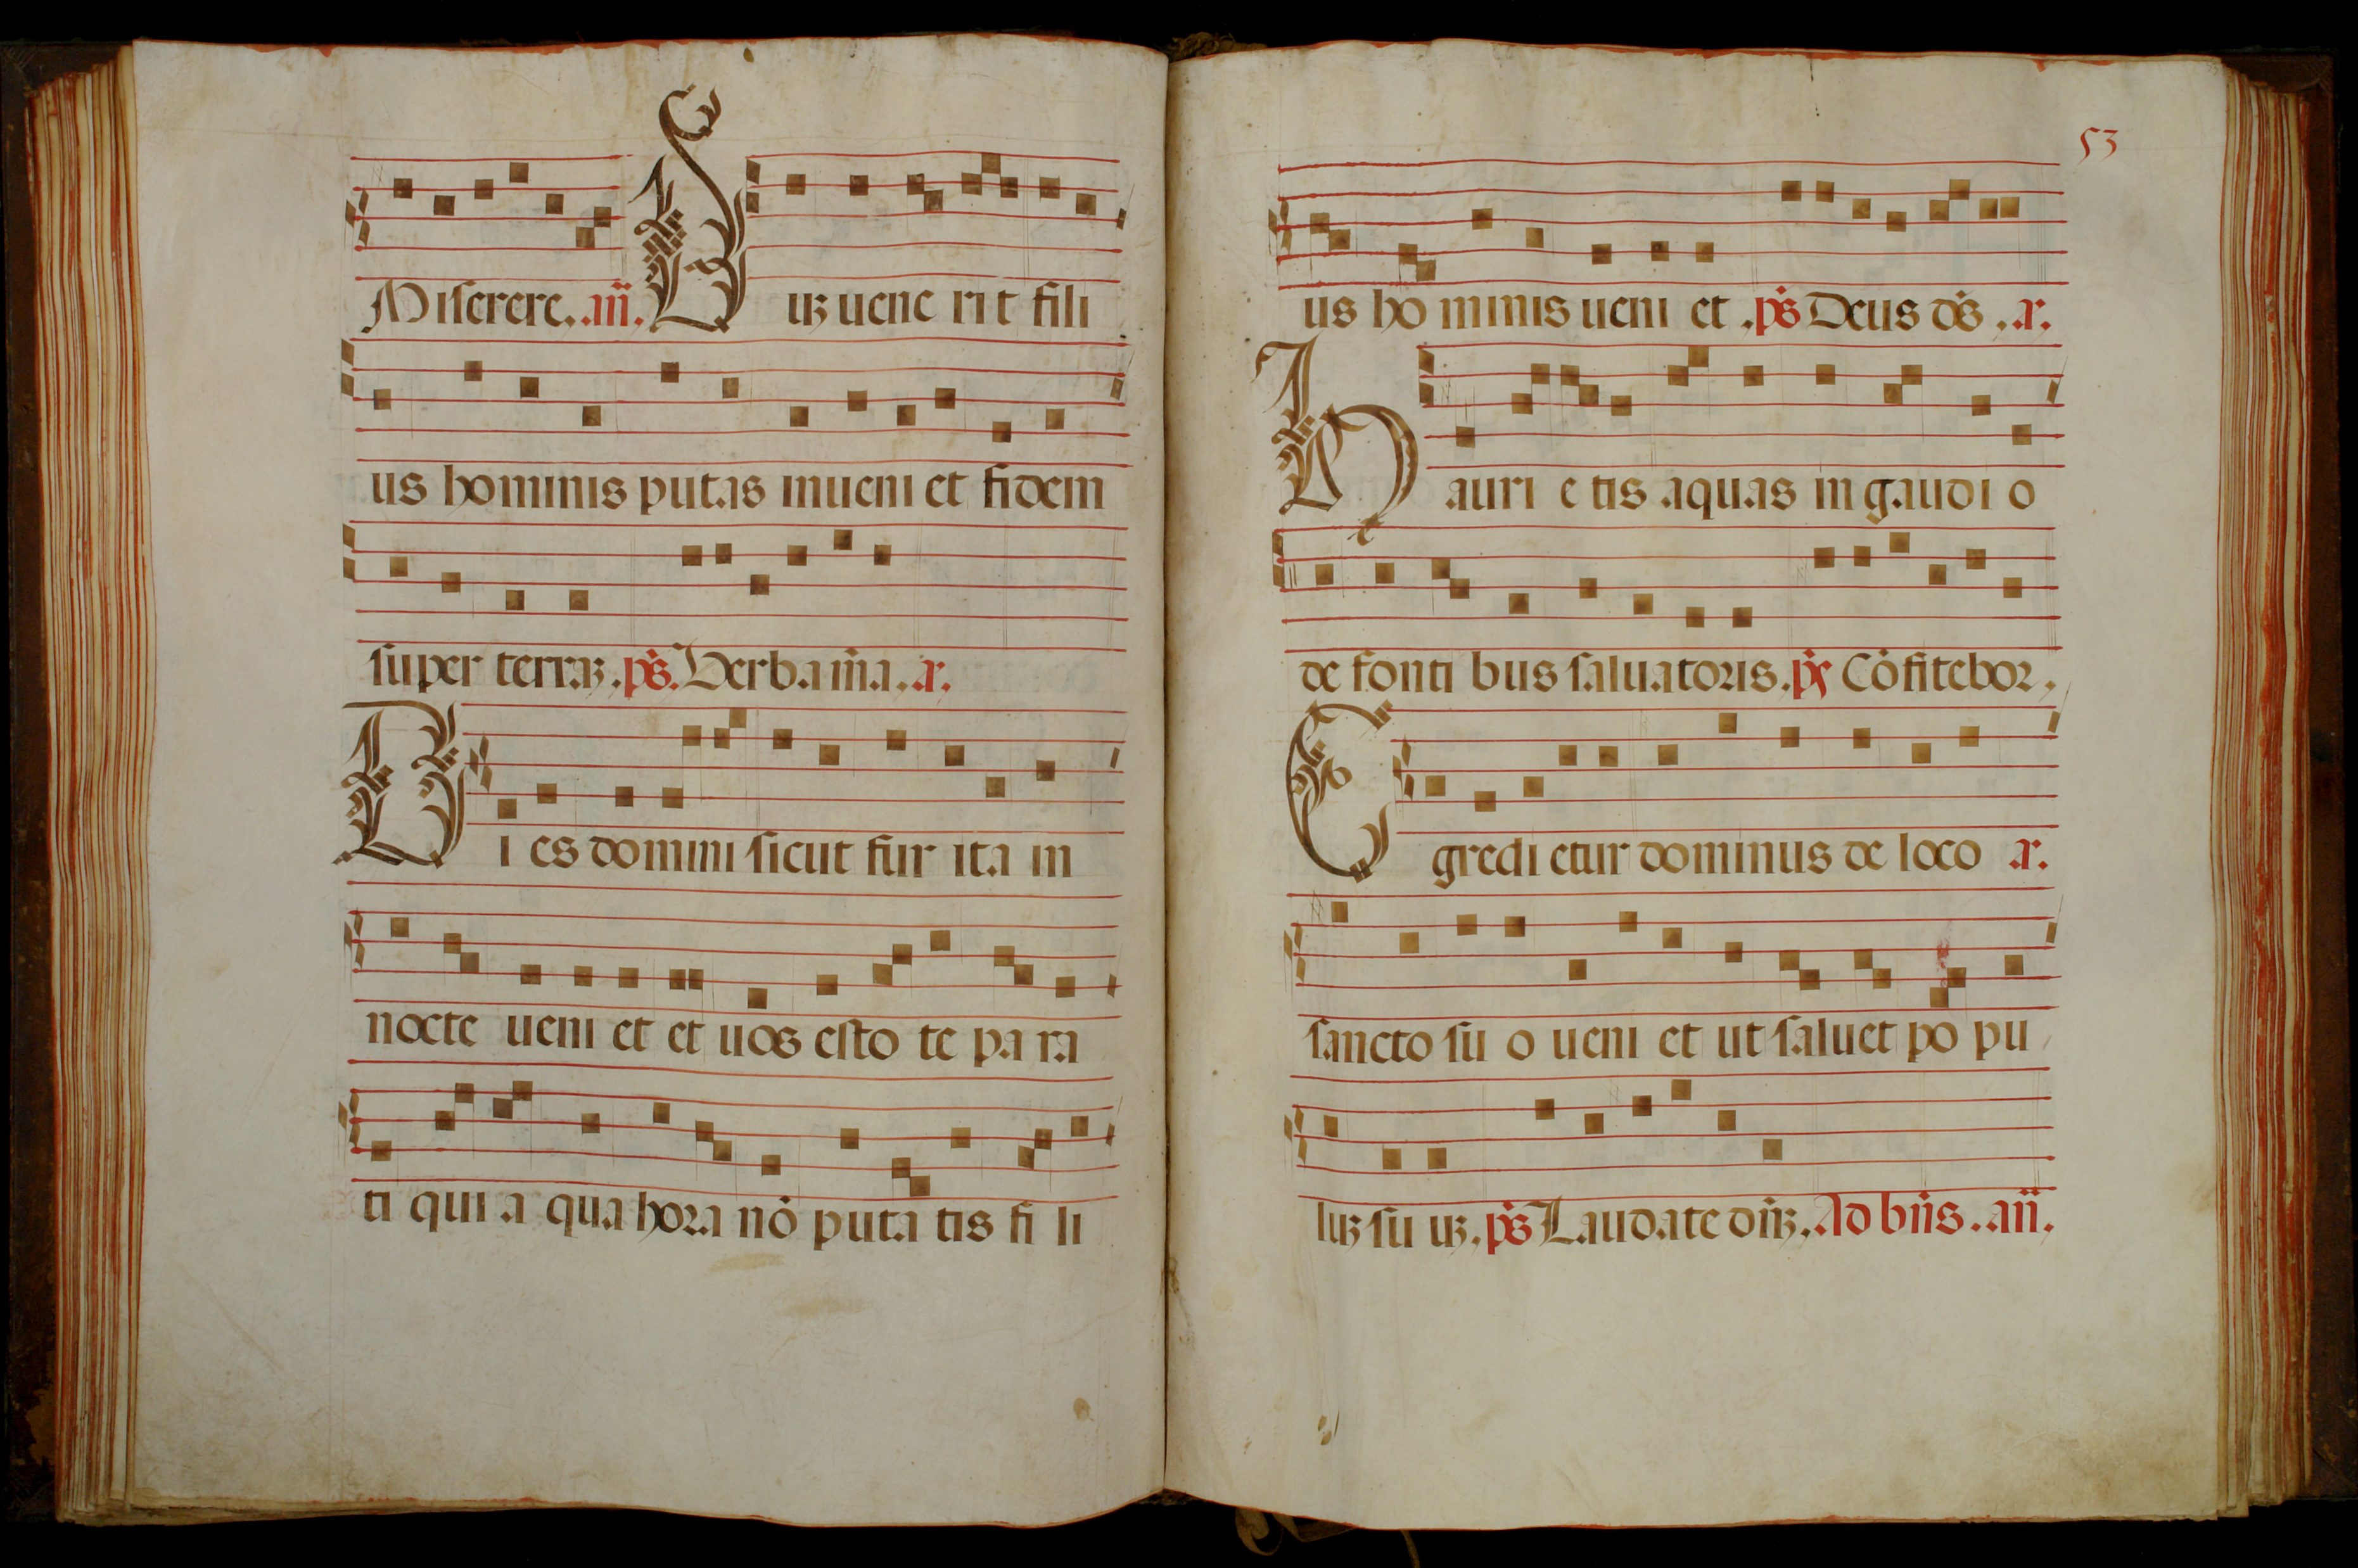 Miserere. añ. Dũ uene rit fili
us hominis putas inueni et fidem
super terrã. ps̃. Verba m̃a. a.
Di es domini sicut fur ita in
nocte ueni et et uos esto te pa ra
ti qui a qua hora nõ puta tis fi li
53
us ho minis ueni et . ps̃ Deus ds̃ . a.
Hauri e tis aquas in gaudi o
de fonti bus saluatoris. ps̃ Cõfitebor,
Egredi etur dominus de loco a.
sancto su o ueni et ut saluet po pu
lũ su ũ. ps̃ Laudate dñũ. Ad bñs. añ.